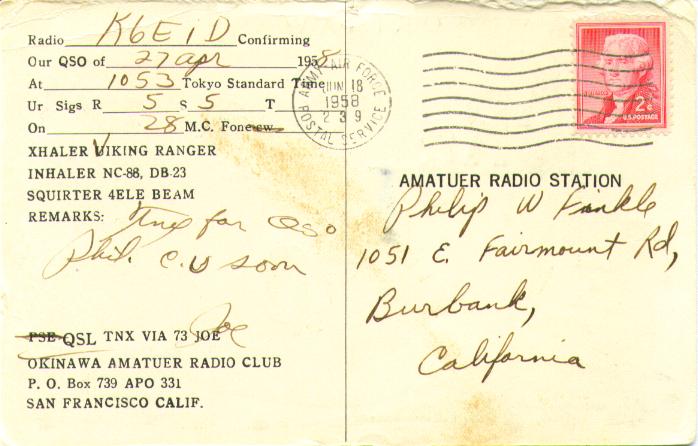 Radio K6EID Confirming
Our QSO of 27 apr 1958
At 1053 Tokyo Standard Time
Ur Sigs R 5 S 5 T
On 28 M.C. Fone cw
XHALER VIKING RANGER
INHALER NC-88, DB-23
SQUIRTER 4ELE BEAM
REMARKS: Tnx for QSO
Phil. C U soon
PSE QSL TNX VIA 73 JOE
Joe
OKINAWA AMATUER RADIO CLUB
P. O. Box 739 APO 331
SAN FRANCISCO CALIF.
ARMY-AIR FORCE
JUN 18
1958
239
POSTAL SERVICE
2¢
U.S. POSTAGE
AMATUER RADIO STATION
Philip W Finkle
1051 E. Fairmount Rd,
Burbank,
California